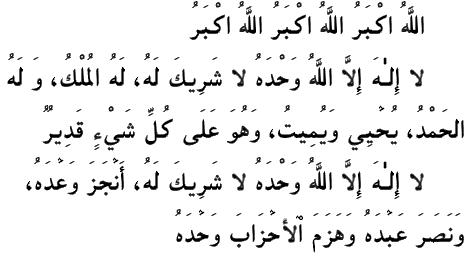 اللَّهُ اكْبَرُ اللَّهُ اكْبَرُ اللَّهُ اكْبَرُ
لا إِلـٰهَ إِلَّا اللَّهُ وَحْدَهُ لا شَرِيكَ لَهُ، لَهُ المُلْكُ، وَ لَهُ
الحَمْدُ، يُحْيِي وَيُمِيتُ، وَهُوَ عَلَى كُلِّ شَيْءٍ قَدِيرٌ
لا إِلـٰهَ إِلَّا اللَّهُ وَحْدَهُ لا شَرِيكَ لَهُ، أَنْجَزَ وَعْدَهُ،
وَنَصَرَ عَبْدَهُ وَهَزَمَ الْأَحْزَابَ وَحْدَهُ